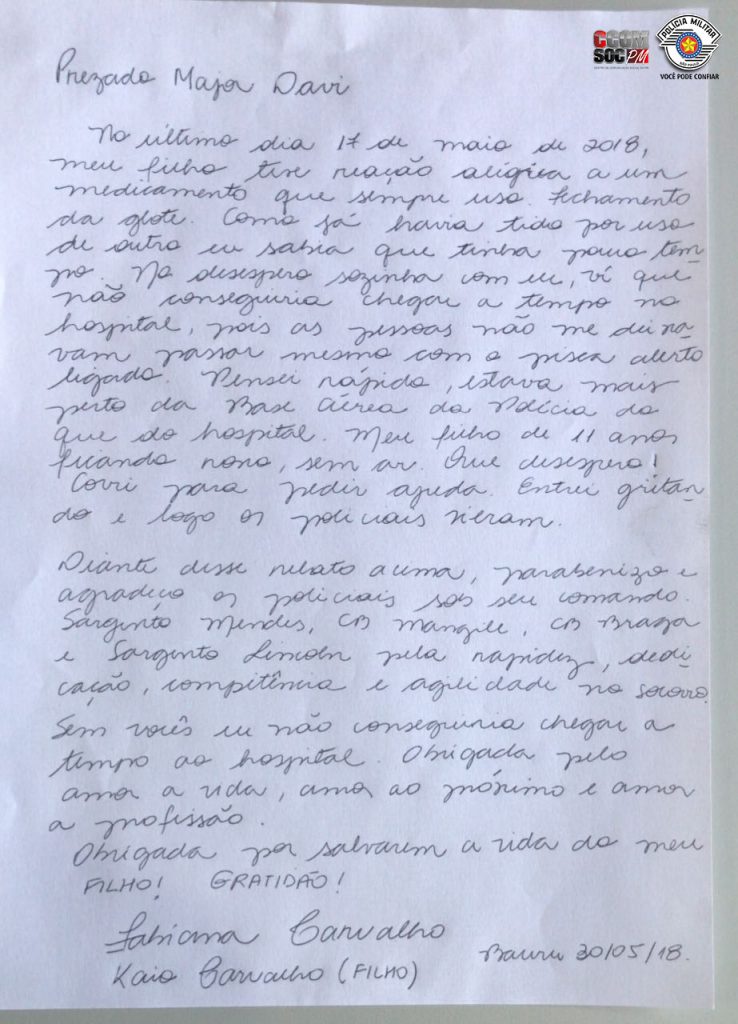 CCOM
SOC PM
POLÍCIA MILITAR
VOCÊ PODE CONFIAR
Prezado Major Davi
No último dia 17 de maio de 2018,
meu filho teve reação alégica a um
medicamento que sempre usa. Fechamento
da glote. Como já havia tido por uso
de outro eu sabia que tinha pouco tem-
po. No desespero sozinha com eu, vi que
não conseguiria chegar a tempo no
hospital, pois as pessoas não me deixa-
vam passar mesmo com o pisca alerta
ligado. Pensei rápido, estava mais
perto da Base Aérea da Polícia do
que do hospital. Meu filho de 11 anos
ficando roxo, sem ar. Que desespero!
Corri para pedir ajuda. Entrei gritan-
do e logo os policiais vieram.
Diante desse relato acima, parabenizo e
agradeço os policiais sob seu comando.
Sargento Mendes, CB Mangile, CB Braga
e Sargento Lincoln pela rapidez, dedi-
cação, competência e agilidade no socorro.
Sem vocês eu não conseguiria chegar a
tempo ao hospital. Obrigada pelo
amor a vida, amor ao próximo e amor
a profissão.
Obrigada por salvarem a vida do meu
FILHO! GRATIDÃO!
Fabiana Carvalho
Kaio Carvalho (FILHO)
Bauru 30/05/18.